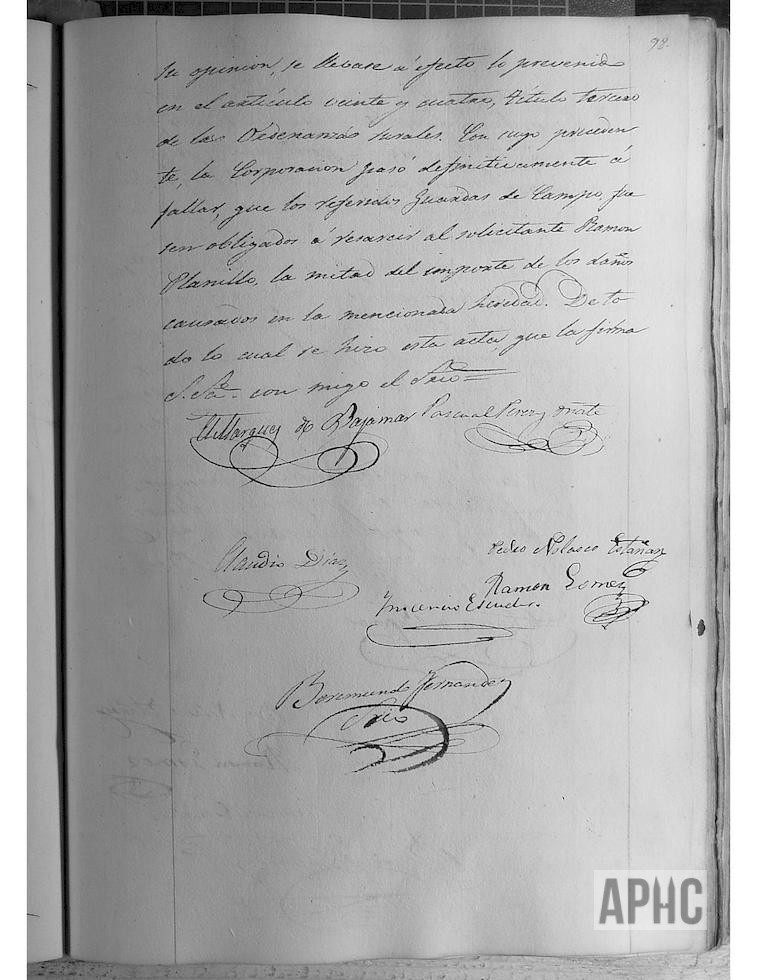 98.
su opinion, se llevase á efecto lo prevenido
en el artículo veinte y cuatro, titulo tercero
de las Ordenanzas rurales. Con cuyo preceden
te, la Corporacion pasó definitivamente á
fallar, que los referidos Guardas de Campo, fue
sen obligados á resarcir al solicitante Ramon
Planillo, la mitad del importe de los daños
causados en la mencionada heredad. De to
do lo cual se hizo esta acta, que la firma
S. Sa. con migo el Srio
El Marques de Bajamar Pascual Perez y Oñate
Claudio Diaz
Pedro Nolasco Estañan
Ramon Gomez
Inocencio Escudo.
Beremundo Fernandez
Srio
APHC